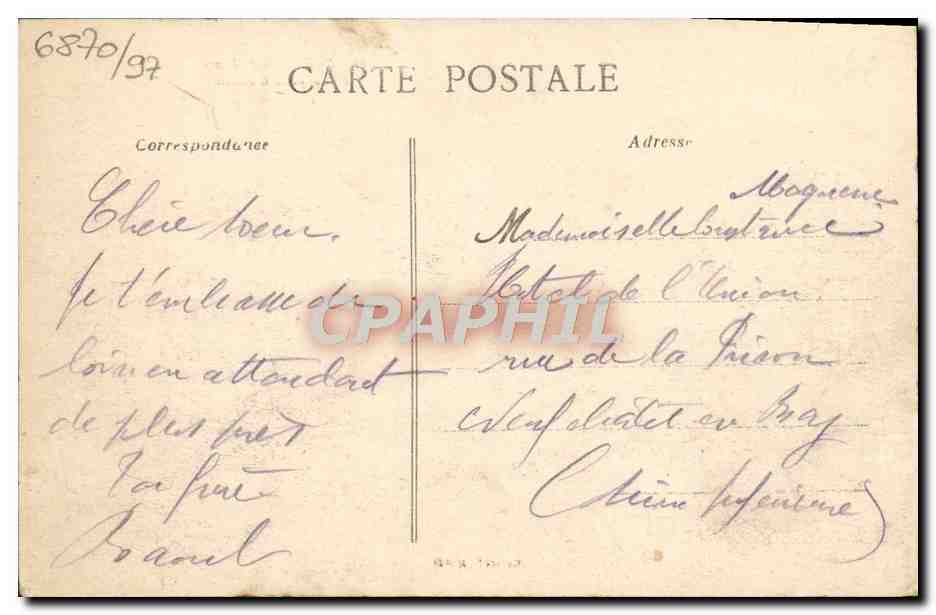 6870/97
CARTE POSTALE
Correspondance
Adresse
Chère soeur.
Je t'embrasse de
loin en attendant
de plus près
Ton frère
Raoul
Mademoiselle Constance
Hotel de l'Union.
rue de la Prison
Neufchâtel en Bray
(Seine Inférieure)
CPAPHIL